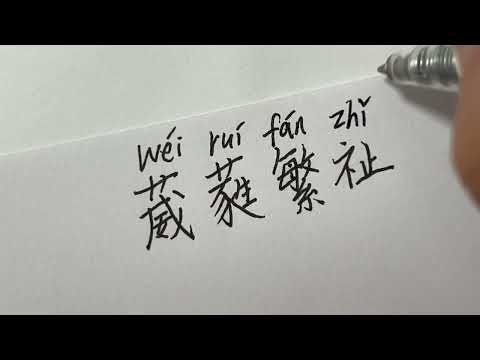 wéi ruí fán zhǐ
葳蕤繁祉